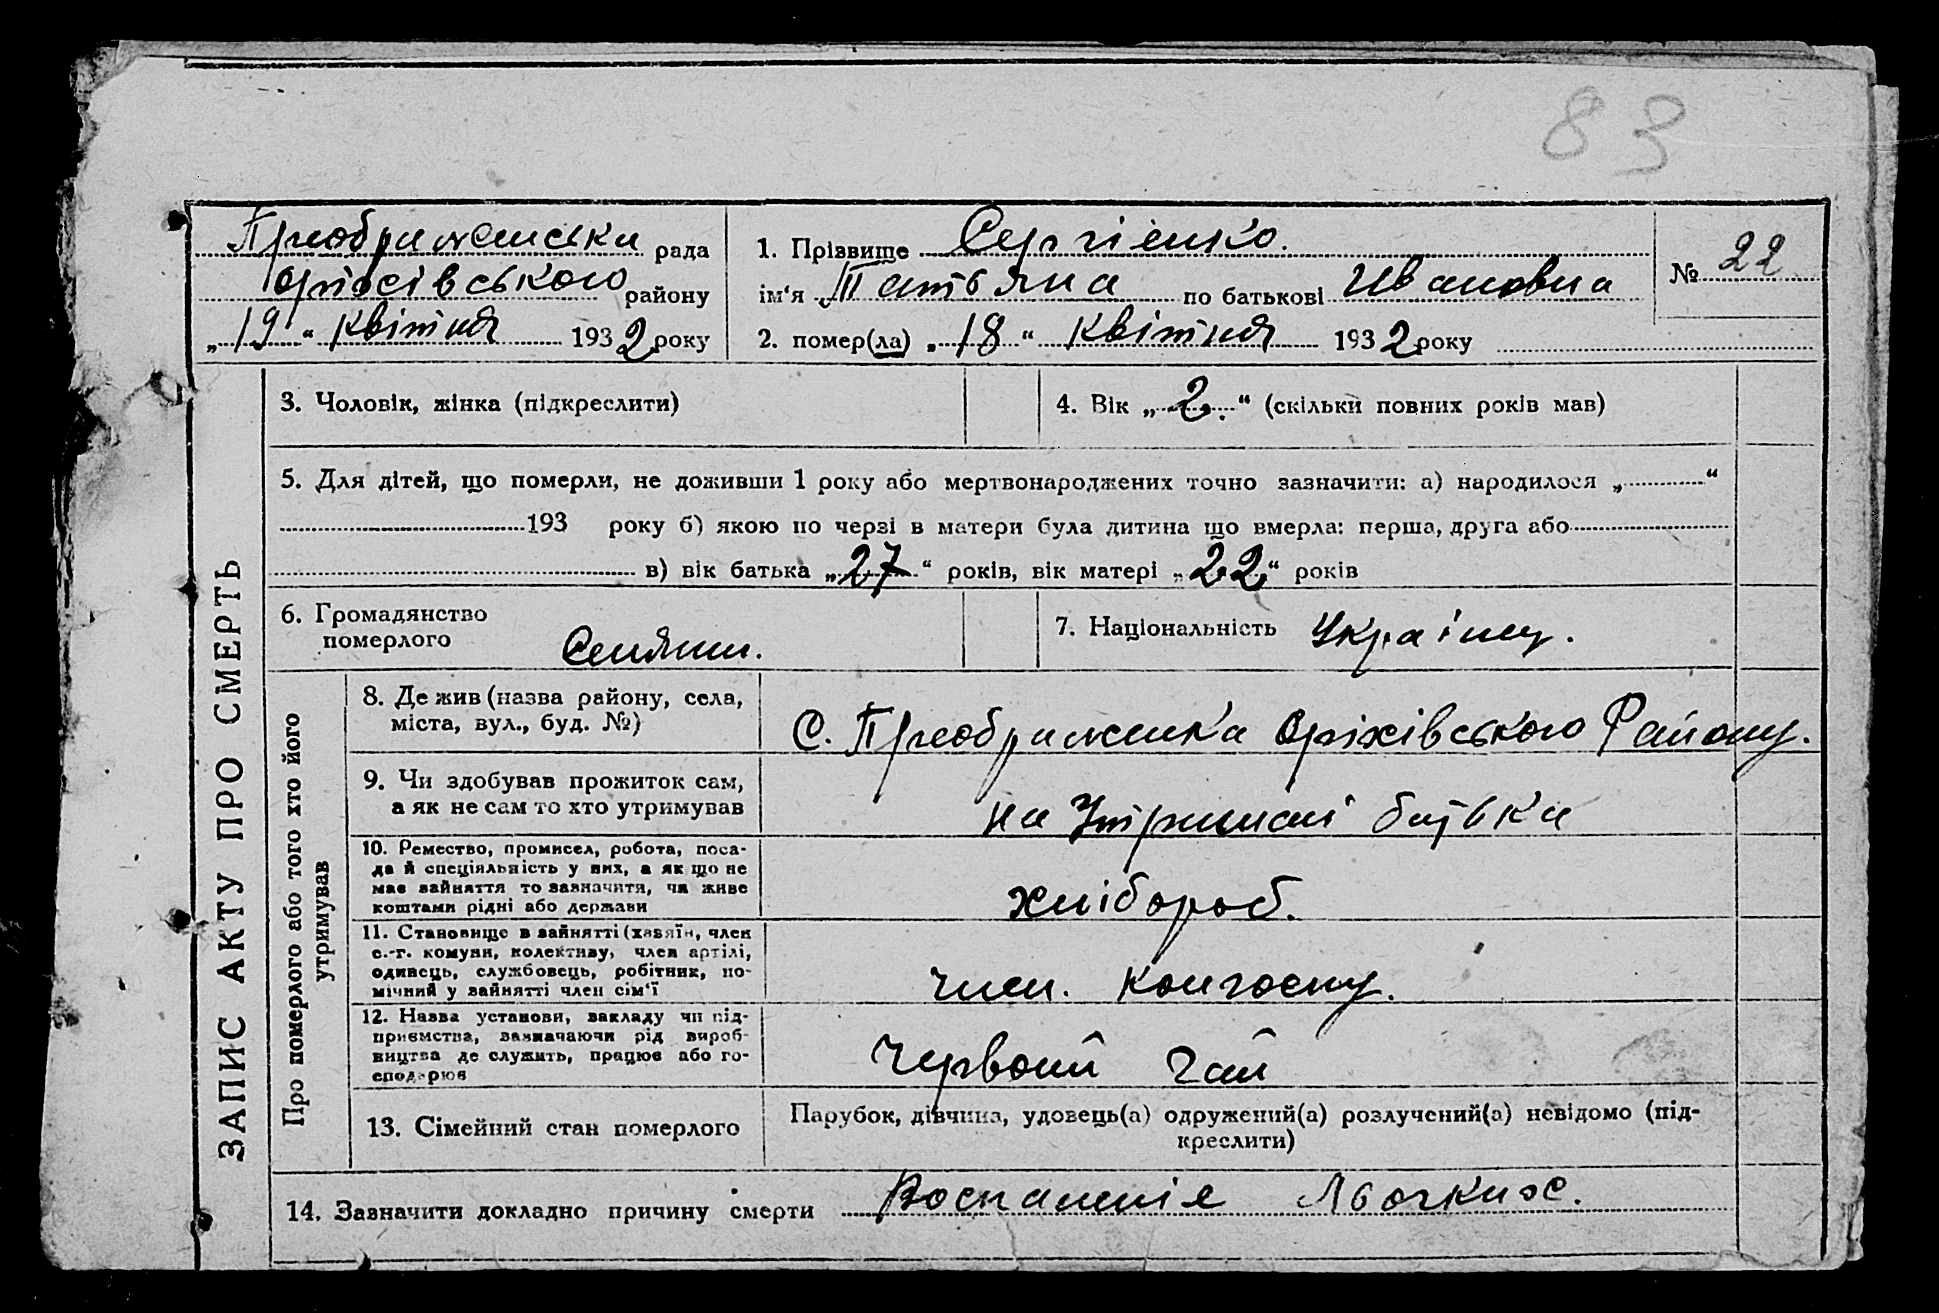 83
Преображенська рада
Оріхівського району
„19“ квітня 1932 року
1. Прізвище Сергієнко.
ім‘я Татьяна по батькові Ивановна
№ 22
2. помер(ла) „18“ квітня 1932 року
ЗАПИС АКТУ ПРО СМЕРТЬ
3. Чоловік, жінка (підкреслити)
4. Вік „2.“ (скільки повних років мав)
5. Для дітей, що померли, не доживши 1 року або мертвонароджених точно зазначити: а) народилося „ “
193 року б) якою по черзі в матери була дитина що вмерла: перша, друга або
в) вік батька „27“ років, вік матері „22“ років
6. Громадянство
померлого Селянин.
7. Національність Україну.
Про померлого або того хто його
утримував
8. Де жив (назва району, села,
міста, вул., буд. №)
С. Преображенка Оріхівського Району.
9. Чи здобував прожиток сам,
а як не сам то хто утримував
на Утримані батька
10. Ремество, промисел, робота, поса-
да й спеціяльність у них, а як що не
має зайняття то зазначити, чи живе
коштами рідні або держави
хлібороб.
11. Становище в зайнятті (хазяїн, член
с.-г. комуни, колективу, член артілі,
одинець, службовець, робітник, по-
мічний у зайнятті член сім‘ї
член. колгоспу.
12. Назва установи, закладу чи під-
приємства, зазначаючи рід вироб-
ництва де служить, працює або го-
сподарює
Червоний Гай
13. Сімейний стан померлого
Парубок, дівчина, удовець(а) одружений(а) розлучений(а) невідомо (під-
креслити)
14. Зазначити докладно причину смерти Воспаленія Льогких.